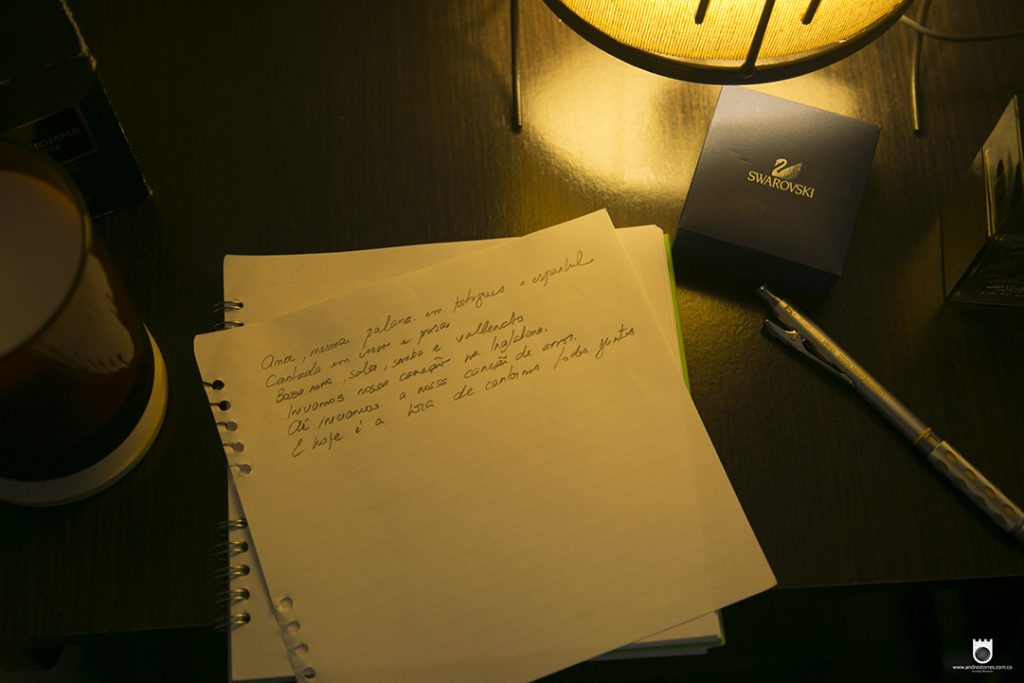 HOMME
SWAROVSKI
Amor, mesma palavra em português e espanhol
Cantada em verso e prosa
Bossa nova, salsa, samba e vallenato
Iniciamos nossa canção na Inglaterra.
Até iniciamos a nossa canção de amor.
E hoje é a hora de cantarmos todos juntos
www.andrestorres.com.co